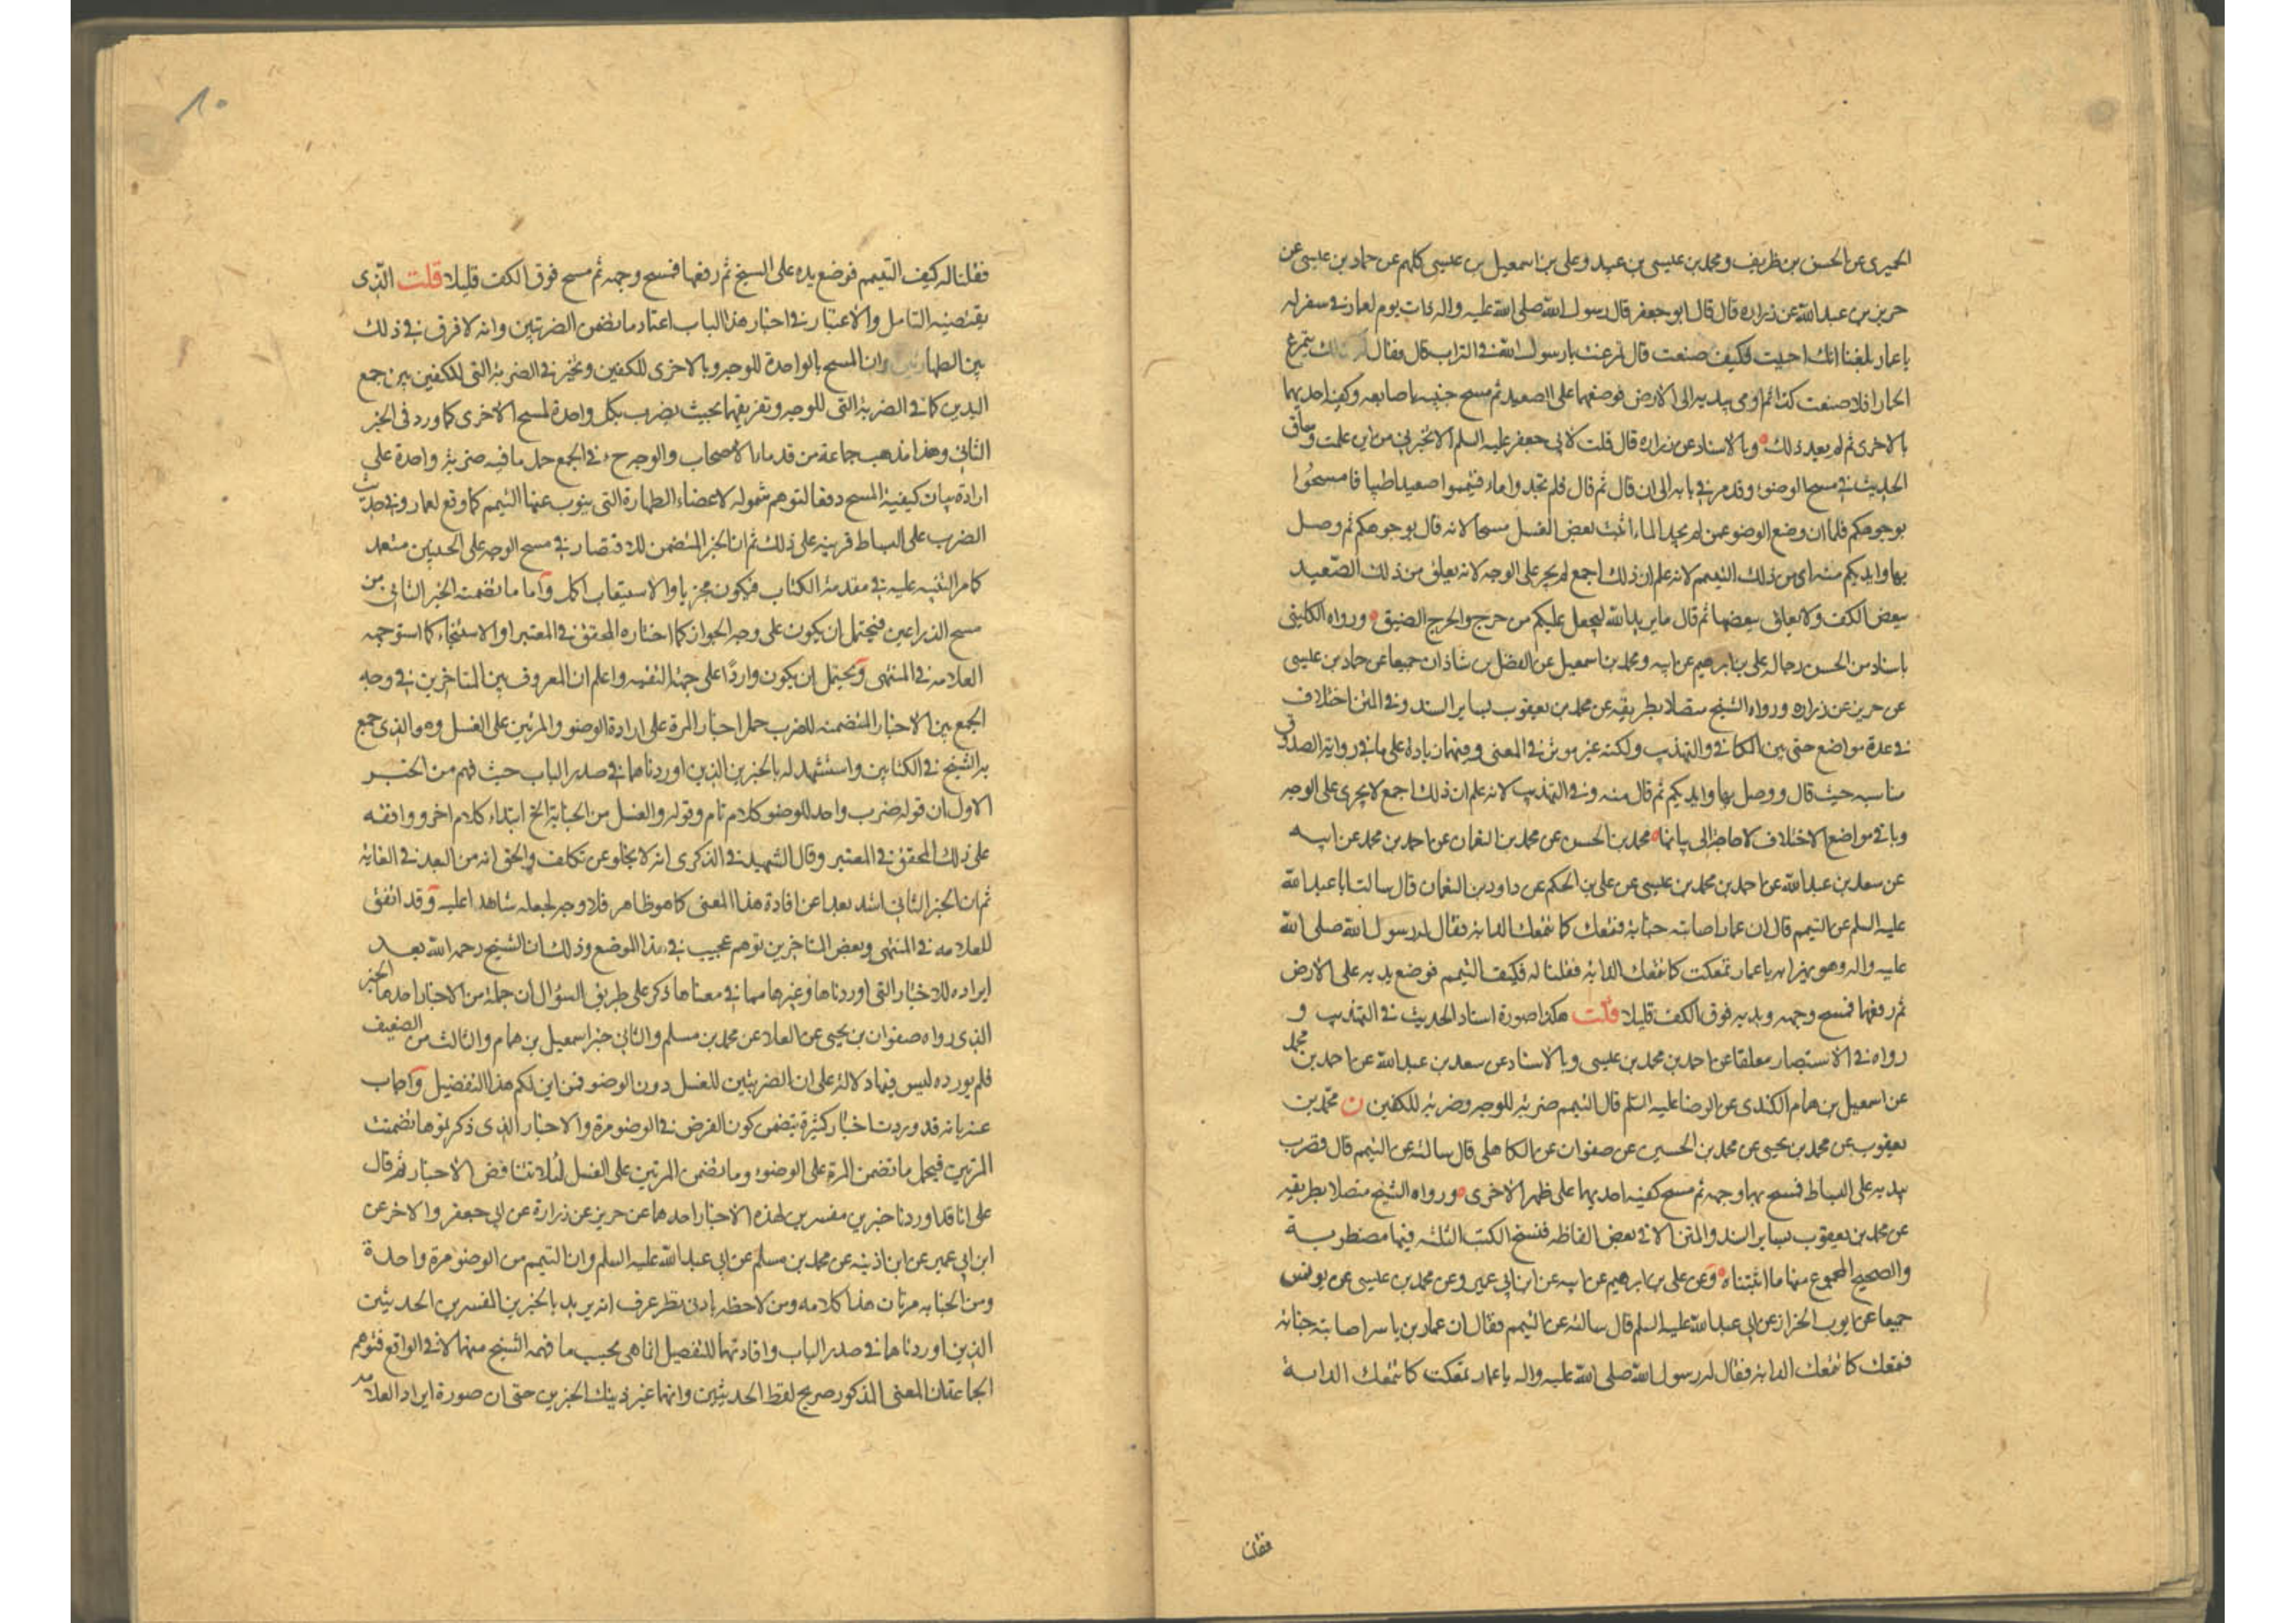 الحميرى عن الحسن بن ظريف ومحمد بن عيسى بن عبيد وعلى بن اسمعيل بن عيسى كلهم عن حماد بن عيسى عن
حريز بن عبد الله عن زراره قال قال ابو جعفر قال رسول الله صلى الله عليه واله ذات يوم لعمار فى سفر له
يا عمار بلغنا انك اجنبت فكيف صنعت قال تمرغت يا رسول الله فى التراب قال فقال له كذلك يتمرغ
الحمار افلا صنعت كذا ثم اومى بيديه الى الارض فوضعهما على الصعيد ثم مسح جنبيه باصابعه وكفيه احديهما
بالاخرى ثم لم يعد ذلك وبالاسناد عن زراره قال قلت لابى جعفر عليه السلم الا تخبرنى من اين علمت وساق
الحديث فى مسح الوضوء وقد مر فى بابه الى ان قال ثم قال فلم تجدوا ماء فتيمموا صعيدا طيبا فامسحوا
بوجوهكم فلما ان وضع الوضوء عمن لم يجد الماء اثبت بعض الغسل مسحا لانه قال بوجوهكم ثم وصل
بها وايديكم منه اى من ذلك التيمم لانه علم ان ذلك اجمع لم يجر على الوجه لانه يعلق من ذلك الصعيد
ببعض الكف ولا يعلق ببعضها ثم قال ما يريد الله ليجعل عليكم من حرج والحرج الضيق ورواه الكلينى
باسناد من الحسن رجاله على بن ابرهيم عن ابيه ومحمد بن اسمعيل عن الفضل بن شاذان جميعا عن حماد بن عيسى
عن حريز عن زراره ورواه الشيخ متصلا بطريقه عن محمد بن يعقوب بساير السند وفى المتن اختلاف
فى عدة مواضع حتى بين الكافى والتهذيب ولكنه غير موثر فى المعنى وفيهما زيادة على ما فى رواية الصدوق
مناسبه حيث قال ووصل بها وايديكم ثم قال منه وفى التهذيب لانه علم ان ذلك اجمع لا يجرى على الوجه
وباقى مواضع الاختلاف لا حاجة الى بيانها محمد بن الحسن عن محمد بن النعمان عن احمد بن محمد عن ابيه
عن سعد بن عبد الله عن احمد بن محمد بن عيسى عن على بن الحكم عن داود بن النعمان قال سالت ابا عبد الله
عليه السلم عن التيمم قال ان عمارا اصابته جنابة فتمعك كما تتمعك الدابة فقال له رسول الله صلى الله
عليه واله وهو يهزا به يا عمار تمعكت كما تتمعك الدابة فقلنا له فكيف التيمم فوضع يديه على الارض
ثم رفعهما فمسح وجهه ويديه فوق الكف قليلا قلت هكذا صورة اسناد الحديث فى التهذيب و
رواه فى الاستبصار معلقا عن احمد بن محمد بن عيسى وبالاسناد عن سعد بن عبد الله عن احمد بن محمد
عن اسمعيل بن همام الكندى عن الرضا عليه السلم قال التيمم ضربة للوجه وضربة للكفين ن محمد بن
يعقوب عن محمد بن يحيى عن محمد بن الحسين عن صفوان عن الكاهلى قال سالته عن التيمم قال فضرب
بيديه على البساط فمسح بهما وجهه ثم مسح كفيه احديهما على ظهر الاخرى ورواه الشيخ متصلا بطريقه
عن محمد بن يعقوب بساير السند والمتن الا فى بعض الفاظه فنسخ الكتب الثلثه فيها مضطربة
والصحيح المجموع منها ما اثبتناه وعن على بن ابرهيم عن ابيه عن ابن ابى عمير وعن محمد بن عيسى عن يونس
جميعا عن ايوب الخزاز عن ابى عبد الله عليه السلم قال سالته عن التيمم فقال ان عمار بن ياسر اصابته جنابة
فتمعك كما تتمعك الدابة فقال له رسول الله صلى الله عليه واله يا عمار تمعكت كما تتمعك الدابة
فقلنا
٨٠
فقلنا له كيف التيمم فوضع يده على المسح ثم رفعها فمسح وجهه ثم مسح فوق الكف قليلا قلت الذى
يقتضيه التامل والاعتبار فى اخبار هذا الباب اعتماد ما تضمن الضربتين وانه لا فرق فى ذلك
بين الطهارتين وان المسح بالواحدة للوجه وبالاخرى للكفين وتخير فى الضربة التى للكفين بين جمع
اليدين كما فى الضربة التى للوجه وتفريقهما بحيث يضرب بكل واحدة لمسح الاخرى كما ورد فى الخبر
الثانى وهذا مذهب جماعة من قدماء الاصحاب والوجه ح فى الجمع حمل ما فيه ضربة واحدة على
ارادة بيان كيفية المسح دفعا لتوهم شموله لاعضاء الطهارة التى ينوب عنها التيمم كما وقع لعمار وفى حديث
الضرب على البساط قرينه على ذلك ثم ان الخبر المتضمن للاقتصار فى مسح الوجه على الجبينين متعدد
كما مر التنبيه عليه فى مقدمة الكتاب فيكون مجزيا والاستيعاب اكمل واما ما تضمنه الخبر الثانى من
مسح الذراعين فيحتمل ان يكون على وجه الجواز كما اختاره المحقق فى المعتبر او الاستحباب كما استوجهه
العلامه فى المنتهى ويحتمل ان يكون واردا على جهة التقيه واعلم ان المعروف بين المتاخرين فى وجه
الجمع بين الاخبار المتضمنه للضرب حمل اخبار المرة على ارادة الوضوء والمرتين على الغسل وهو الذى جمع
به الشيخ فى الكتابين واستشهد له بالخبرين الذين اوردناهما فى صدر الباب حيث فهم من الخبر
الاول ان قوله ضرب واحد للوضوء كلام تام وقوله والغسل من الجنابة الخ ابتداء كلام اخر ووافقه
على ذلك المحقق فى المعتبر وقال الشهيد فى الذكرى انه لا يخلو عن تكلف والحق انه من البعد فى الغاية
ثم ان الخبر الثانى اشد بعدا عن افادة هذا المعنى كما هو ظاهر فلا وجه لجعله شاهدا عليه وقد اتفق
للعلامه فى المنتهى وبعض المتاخرين توهم عجيب فى هذا الموضع وذلك ان الشيخ رحمه الله بعد
ايراده للاخبار التى اوردناها وغيرها مما فى معناها ذكر على طريق السؤال ان جملة من الاخبار احدها الخبر
الذى رواه صفوان بن يحيى عن العلا عن محمد بن مسلم والثانى خبر اسمعيل بن همام والثالث من الضعيف
فلم نورده ليس فيها دلالة على ان الضربتين للغسل دون الوضوء فمن اين لكم هذا التفصيل واجاب
عنه بانه قد وردت اخبار كثيرة تتضمن كون الفرض فى الوضوء مرة والاخبار الذى ذكرتموها تضمنت
المرتين فيحمل ما تضمن المرة على الوضوء وما تضمن المرتين على الغسل لئلا تتناقض الاخبار ثم قال
على انا قد اوردنا خبرين مفسرين لهذه الاخبار احدهما عن حريز عن زرارة عن ابى جعفر والاخر عن
ابن ابى عمير عن ابن اذينه عن محمد بن مسلم عن ابى عبد الله عليه السلم وان التيمم من الوضوء مرة واحدة
ومن الجنابه مرتان هذا كلامه ومن لاحظه بادنى نظر عرف انه يريد بالخبرين المفسرين الحديثين
الذين اوردناهما فى صدر الباب وافادتهما للتفصيل انما هى بحسب ما فهمه الشيخ منهما لا فى الواقع فتوهم
الجماعة ان المعنى المذكور صريح لفظ الحديثين وانهما غير ذينك الخبرين حتى ان صورة ايراد العلامه